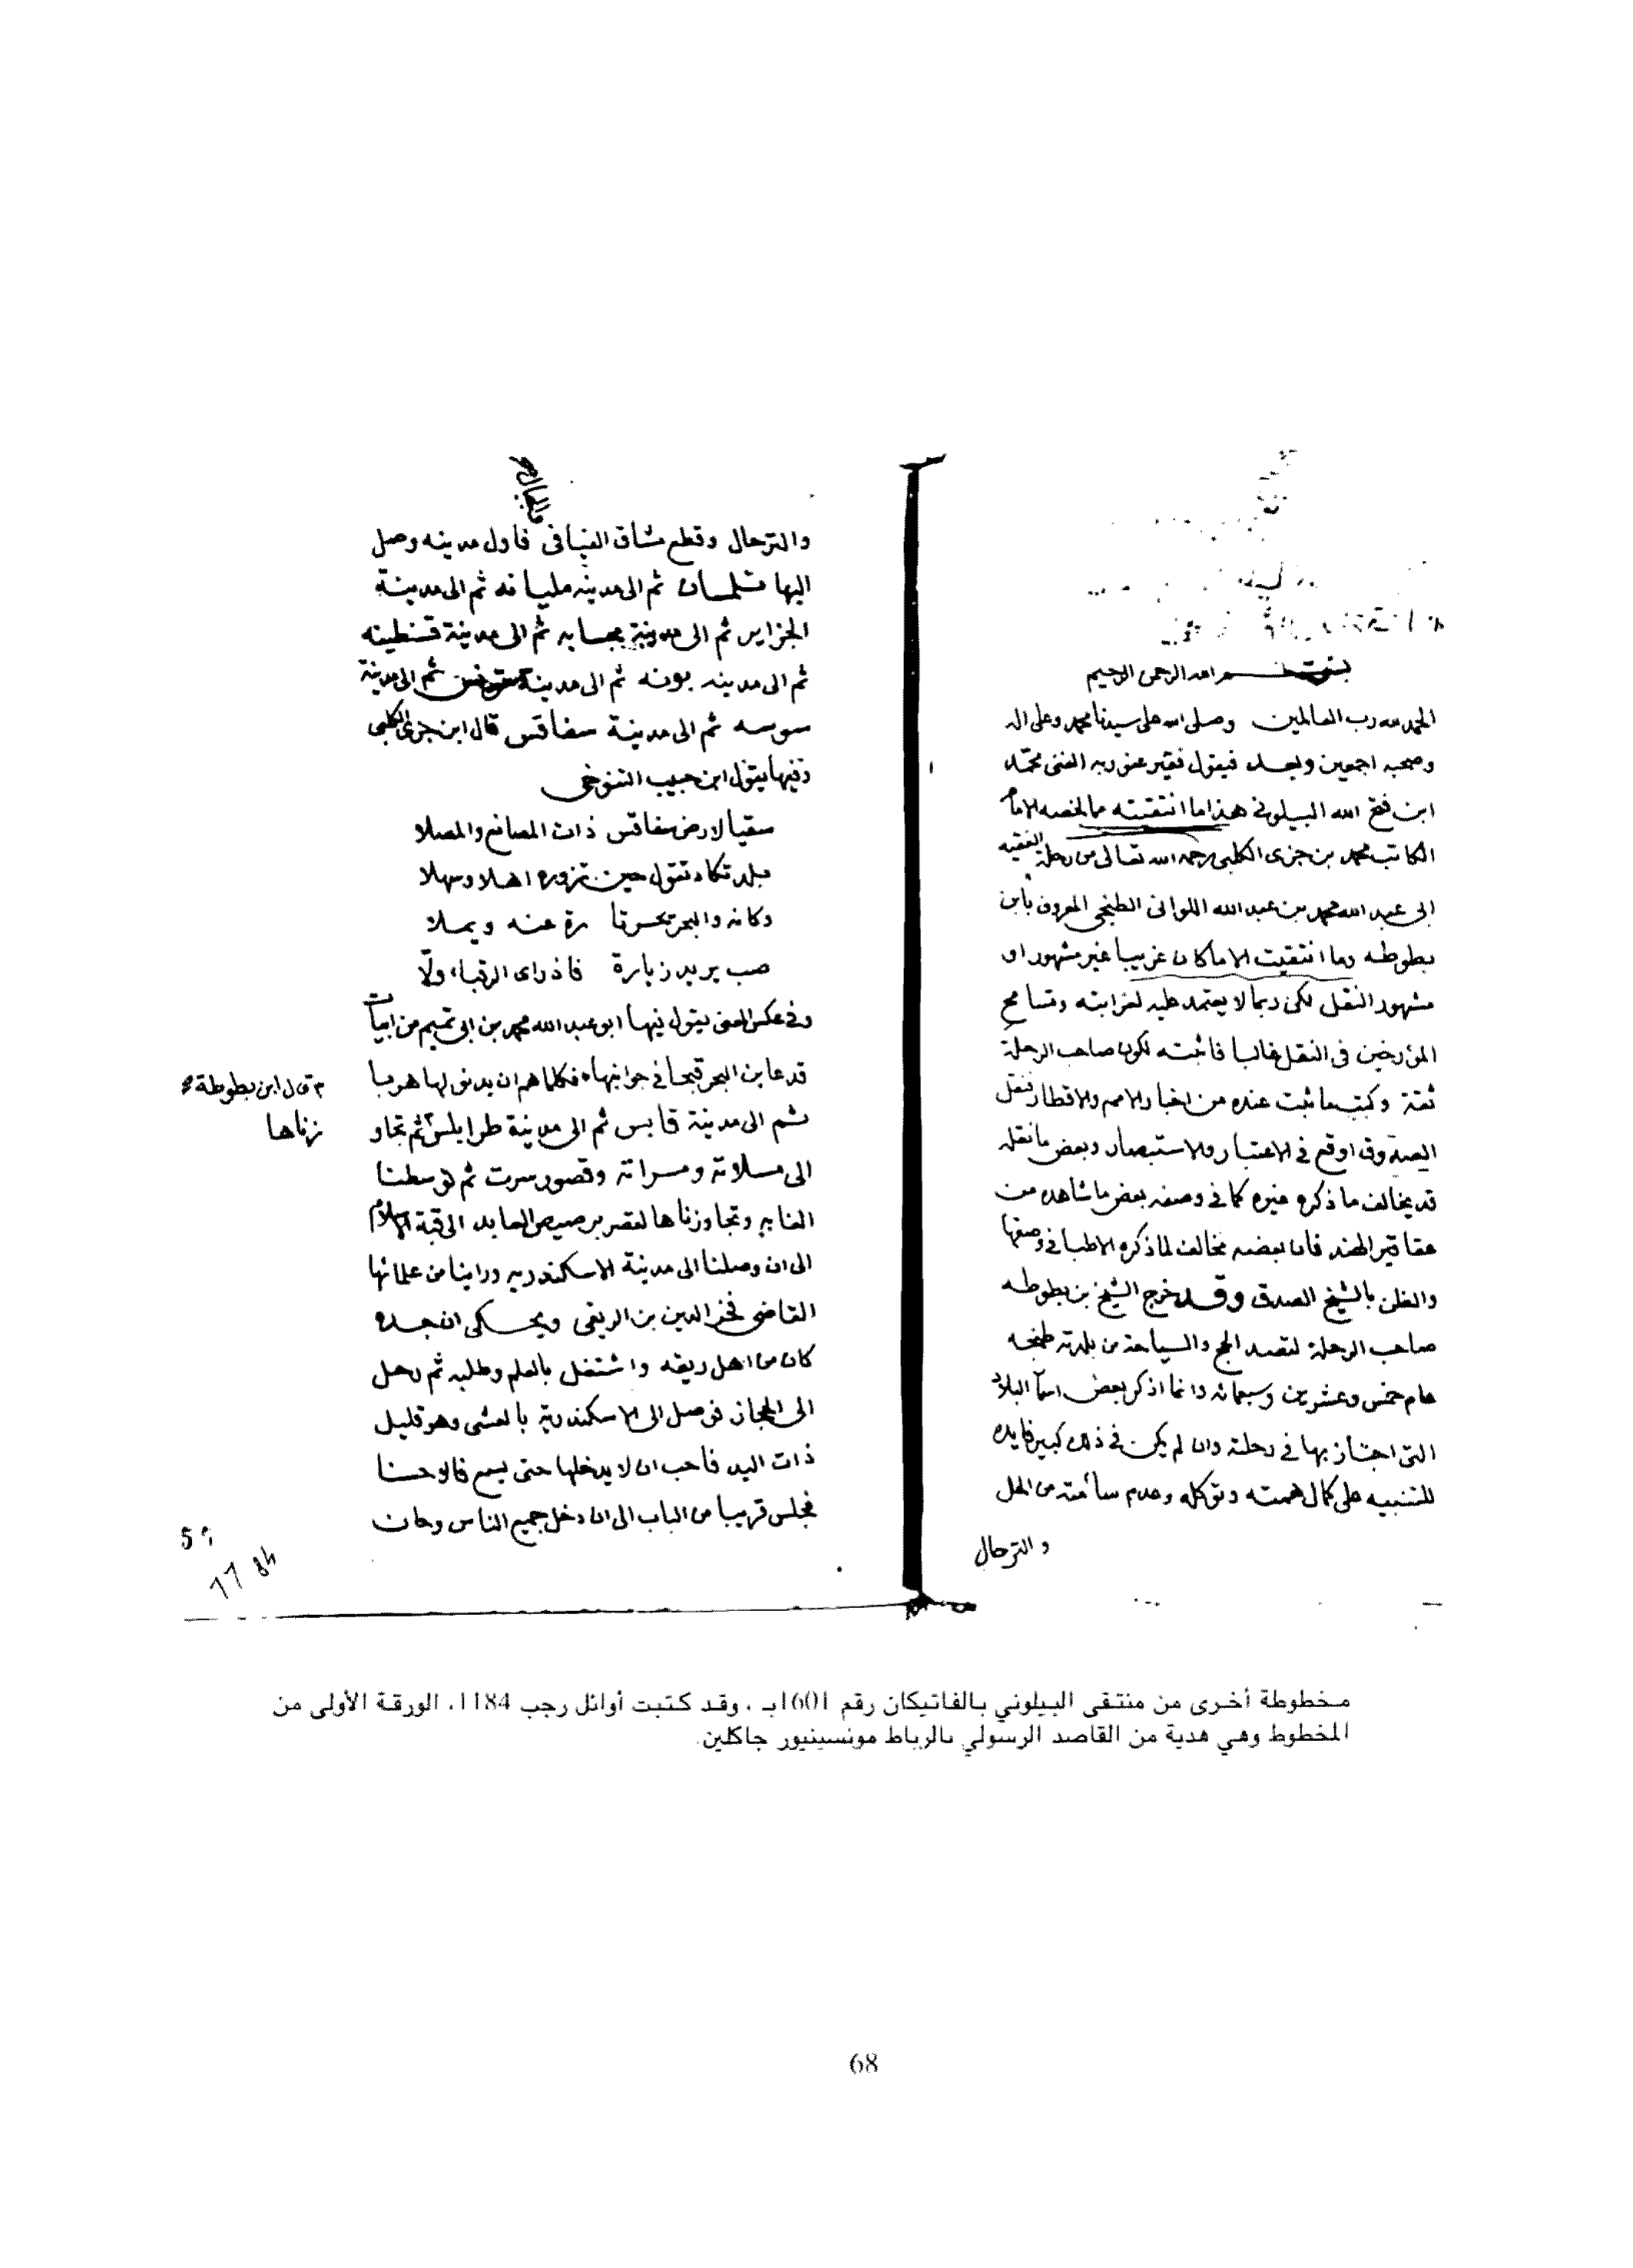 بسم الله الرحمن الرحيم
الحمد لله رب العالمين وصلى الله على سيدنا محمد وعلى اله
وصحبه اجمعين وبعد فيقول فقير عفو ربه الغنى محمد
ابن فتح الله البيلونى هذا ما انتقيته مما لخصه الامام
الكاتب محمد بن جزى الكلبى رحمه الله تعالى من رحلة الفقيه
ابى عبد الله محمد بن عبد الله اللواتى الطنجى المعروف بابن
بطوطه وما انتقيت الا ما كان غريبا غير مشهور او
مشهور النقل لكن ربما لا يعتمد عليه لغرابته وتسامح
المؤرخين فى النقل غالبا فاثبته لكون صاحب الرحلة
ثقة وكتب ما ثبت عنده من اخبار الامم والاقطار فنقل
الصدوق اوقع فى الاعتبار والاستبصار وبعض ما نقله
قد يخالف ما ذكره غيره كما فى وصفه بعض ما شاهده من
عقاقير الهند فان بعضه مخالف لما ذكره الاطبا فى وصفها
والظن بالشيخ الصدق وقد خرج الشيخ بن بطوطه
صاحب الرحلة لقصد الحج والسياحة من بلدته طنجه
عام خمس وعشرين وسبعمائه وانما اذكر بعض اسمآ البلاد
التى اجتاز بها فى رحلته وان لم يكن فى ذلك كبير فايده
للتنبيه على كمال همته وتوكله وعدم سأمته من الحل
والترحال
والترحال وقطع مشاق الفيافى فاول مدينه وصل
اليها تلمسان ثم الى مدينه مليانه ثم الى مدينة
الجزاير ثم الى مدينة بجايه ثم الى مدينة قسنطينه
ثم الى مدينه بونه ثم الى مدينة تونس ثم الى مدينة
سوسه ثم الى مدينة سفاقس قال ابن جزى الكلبى
وفيها يقول ابن حبيب التنوخى
سقيا لارض سفاقس ذات المصانع والمصلا
بلد تكاد تقول حين تزوره اهلا وسهلا
وكانه والبحر يحسر تا رة عنه ويملا
صب يريد زيارة فاذا راى الرقباء ولّا
وفى عكس المعنى يقول فيها ابو عبد الله محمد بن ابى تميم من ابيات
قد عاين البحر قبحا فى جوانبها فكلما هم ان يدنو لها هربا
ثم الى مدينة قابس ثم الى مدينة طرابلس ثم تجاو
قال ابن بطوطة
زناها
الى مسلاتة ومسراتة وقصور سرت ثم توسطنا
الغابه وتجاوزناها لقصر برصيص العابد الى قبة الاسلام
الى ان وصلنا الى مدينة الاسكندريه وراينا من علمائها
القاضى فخر الدين بن الريغى ويحكى ان جده
كان من اهل ريغه واشتغل بالعلم وطلبه ثم رحل
الى الحجاز فوصل الى الاسكندرية بالعشى وهو قليل
ذات اليد فاحب ان لا يدخلها حتى يسمع فالا حسنا
فجلس قريبا من الباب الى ان دخل جميع الناس وحان
مخطوطة أخرى من منتقى البيلوني بالفاتيكان رقم 1601بـ ، وقد كتبت أوائل رجب 1184، الورقة الأولى من
المخطوط وهي هدية من القاصد الرسولي بالرباط مونسينيور جاكلين.
68